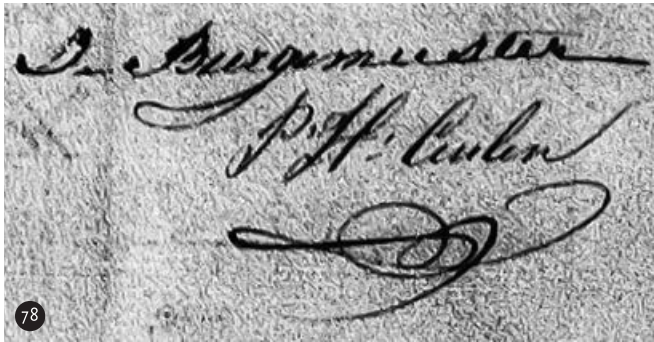 D. Burgemeester
P. H. Ceulen
78